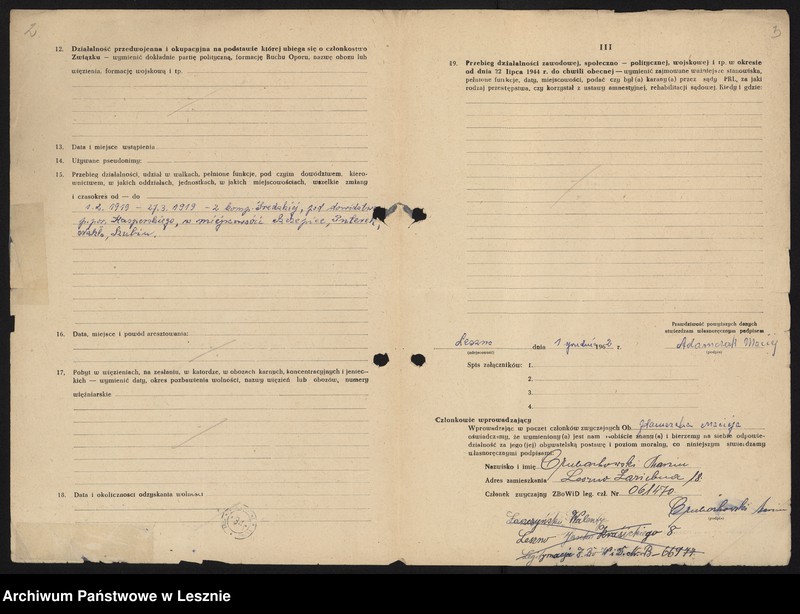 2
12. Działalność przedwojenna i okupacyjna na podstawie której ubiega się o członkostwo
Związku — wymienić dokładnie partię polityczną, formację Ruchu Oporu, nazwę obozu lub
więzienia, formację wojskową i tp.
13. Data i miejsce wstąpienia
14. Używane pseudonimy:
15. Przebieg działalności, udział w walkach, pełnione funkcje, pod czyim dowództwem, kiero-
wnictwem, w jakich oddziałach, jednostkach, w jakich miejscowościach, wszelkie zmiany
i czasokres od — do
1.2.1919 – 27.3.1919 – 2 komp. Średzkiej, pod dowództwem
ppor. Kasperskiego, w miejscowości Szczepice,
Nakło, Szubin.
16. Data, miejsce i powód aresztowania:
17. Pobyt w więzieniach, na zesłaniu, w katordze, w obozach karnych, koncentracyjnych i jeniec-
kich — wymienić daty, okres pozbawienia wolności, nazwy więzień lub obozów, numery
więźniarskie
18. Data i okoliczności odzyskania wolności
3
III
19. Przebieg działalności zawodowej, społeczno — politycznej, wojskowej i tp. w okresie
od dnia 22 lipca 1944 r. do chwili obecnej — wymienić zajmowane ważniejsze stanowiska,
pełnione funkcje, daty, miejscowości, podać czy był(a) karany(a) przez sądy PRL, za jaki
rodzaj przestępstwa, czy korzystał z ustawy amnestyjnej, rehabilitacji sądowej. Kiedy i gdzie:
Prawdziwość powyższych danych
stwierdzam własnoręcznym podpisem
Leszno dnia 1 grudnia 196 r. Adamczak Maciej
(miejscowość) (podpis)
Spis załączników: 1.
2.
3.
4.
Członkowie wprowadzający
Wprowadzając w poczet członków zwyczajnych Ob. Adamczaka Macieja
oświadczamy, że wymieniony(a) jest nam osobiście znany(a) i bierzemy na siebie odpowie-
dzialność za jego(jej) obywatelską postawę i poziom moralny, co niniejszym stwierdzamy
własnoręcznymi podpisem:
Nazwisko i imię Marcin
Adres zamieszkania Leszno 18.
Członek zwyczajny ZBoWiD leg. czł. Nr 061470
(podpis)
Walenty
Leszno Krasickiego 8
Legitymacja B-66977
Archiwum Państwowe w Lesznie